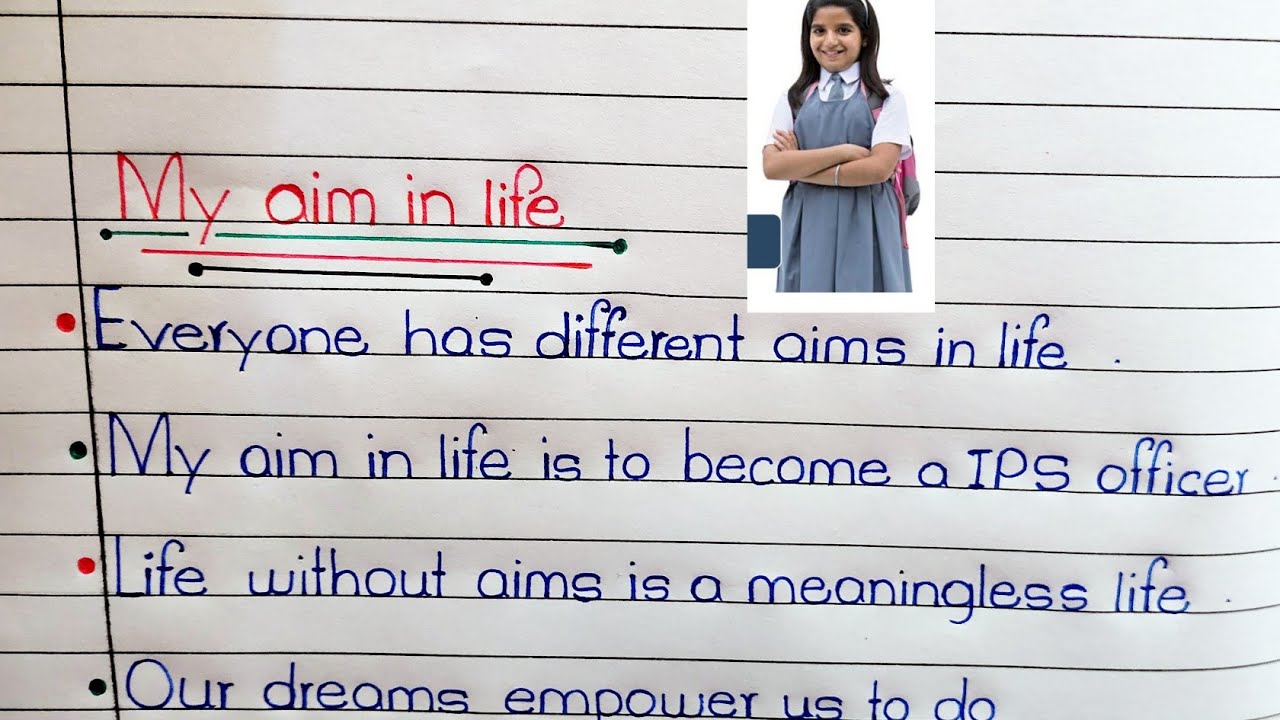 My aim in life
Everyone has different aims in life .
My aim in life is to become a IPS officer .
Life without aims is a meaningless life .
Our dreams empower us to do